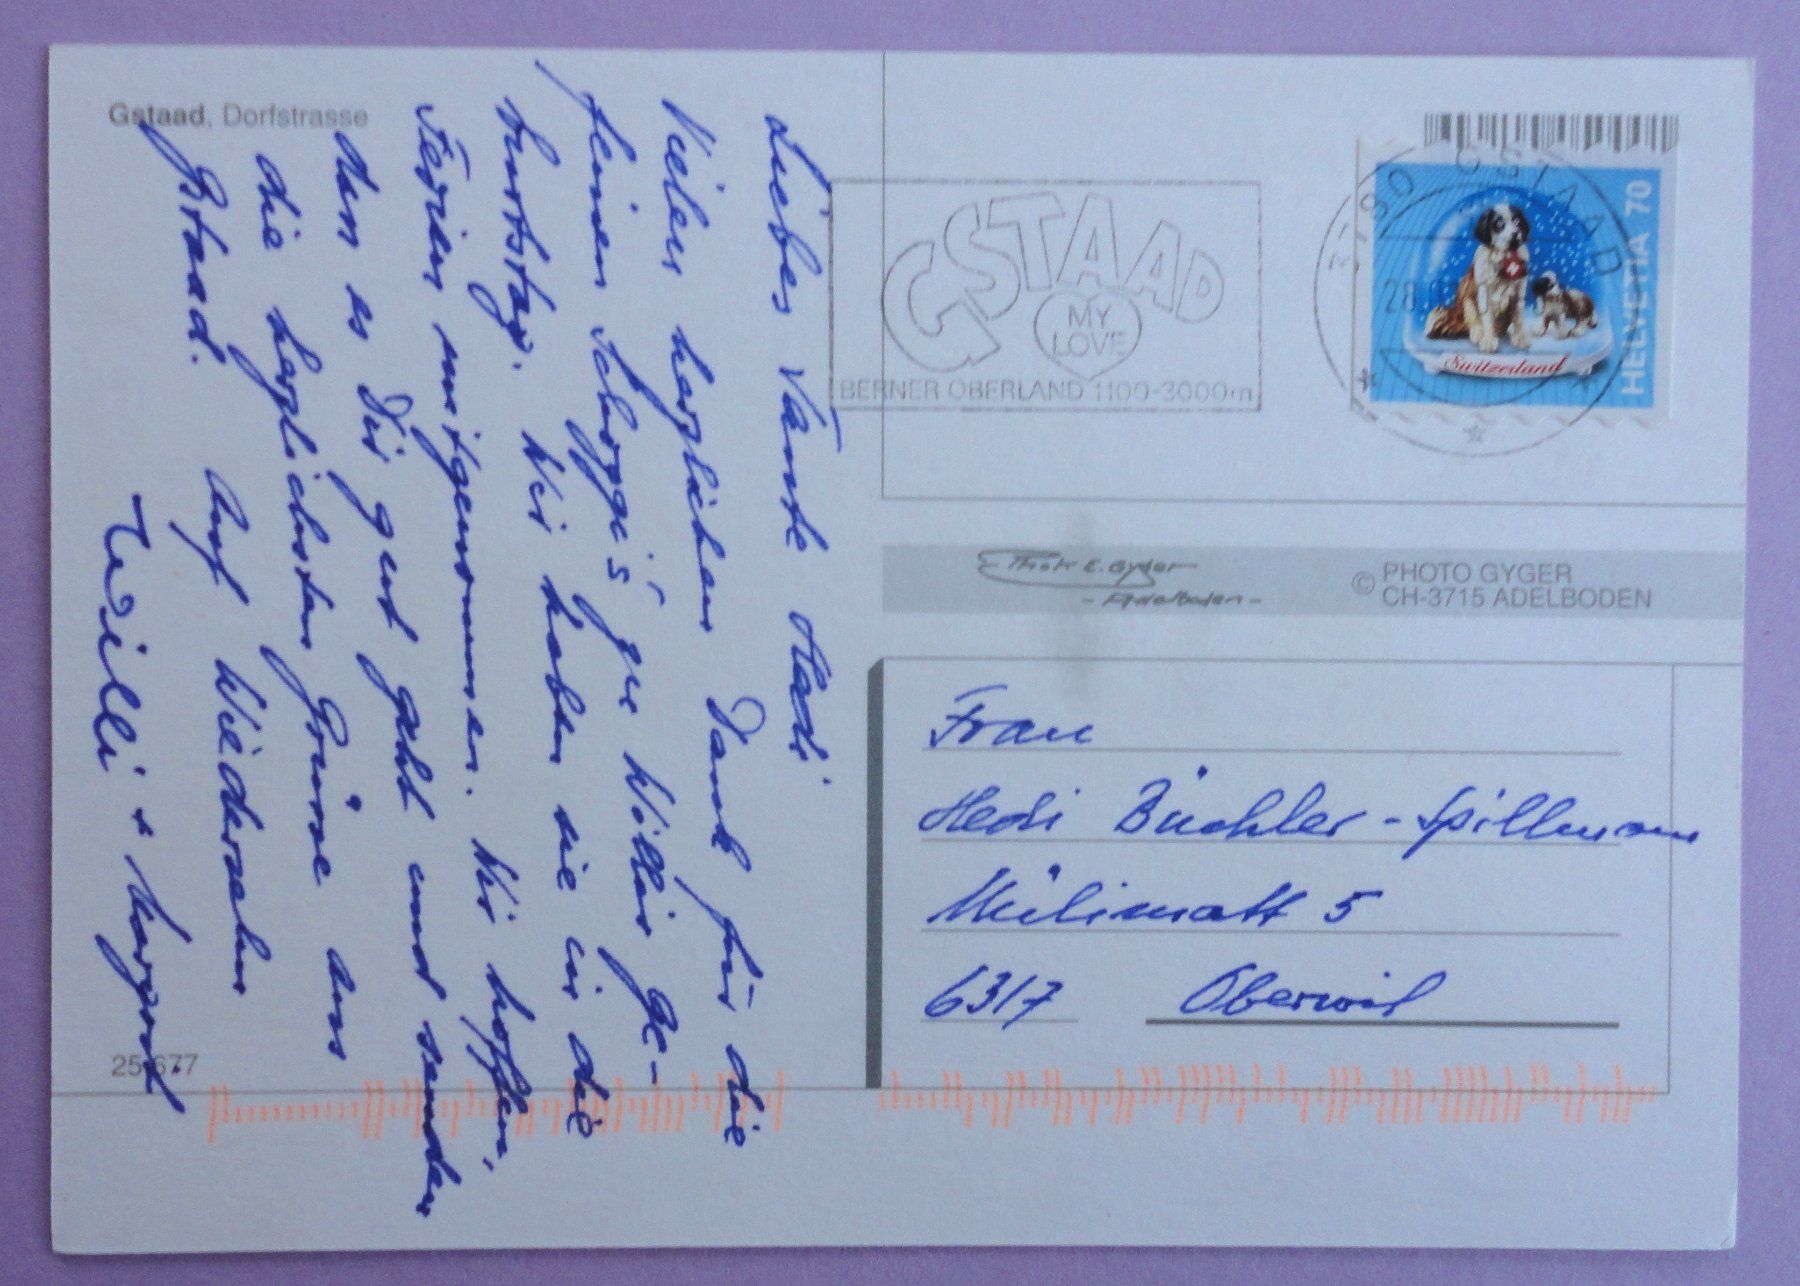 Gstaad, Dorfstrasse
Liebes Tante Hedi
Vielen herzlichen Dank für die
feinen Schoggi's zu Willis Ge-
burtstag. Wir haben sie in die
Ferien mitgenommen. Wir hoffen,
dass es Dir gut geht und senden
die herzlichsten Grüsse aus
Gstaad. Auf Wiedersehn
Willi + Margrit
25 677
GSTAAD
MY
LOVE
BERNER OBERLAND 1100-3000m
3780 GSTAAD
28.
HELVETIA 70
Switzerland
Photo E. Gyger
- Adelboden -
© PHOTO GYGER
CH-3715 ADELBODEN
Frau
Hedi Büchler-Spillmann
Mülimatt 5
6317 Oberwil